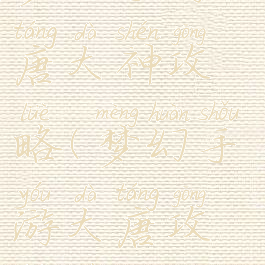 táng dà shén gōng
唐大神攻
lüè mèng huàn shǒu
略(梦幻手
yóu dà táng gōng
游大唐攻